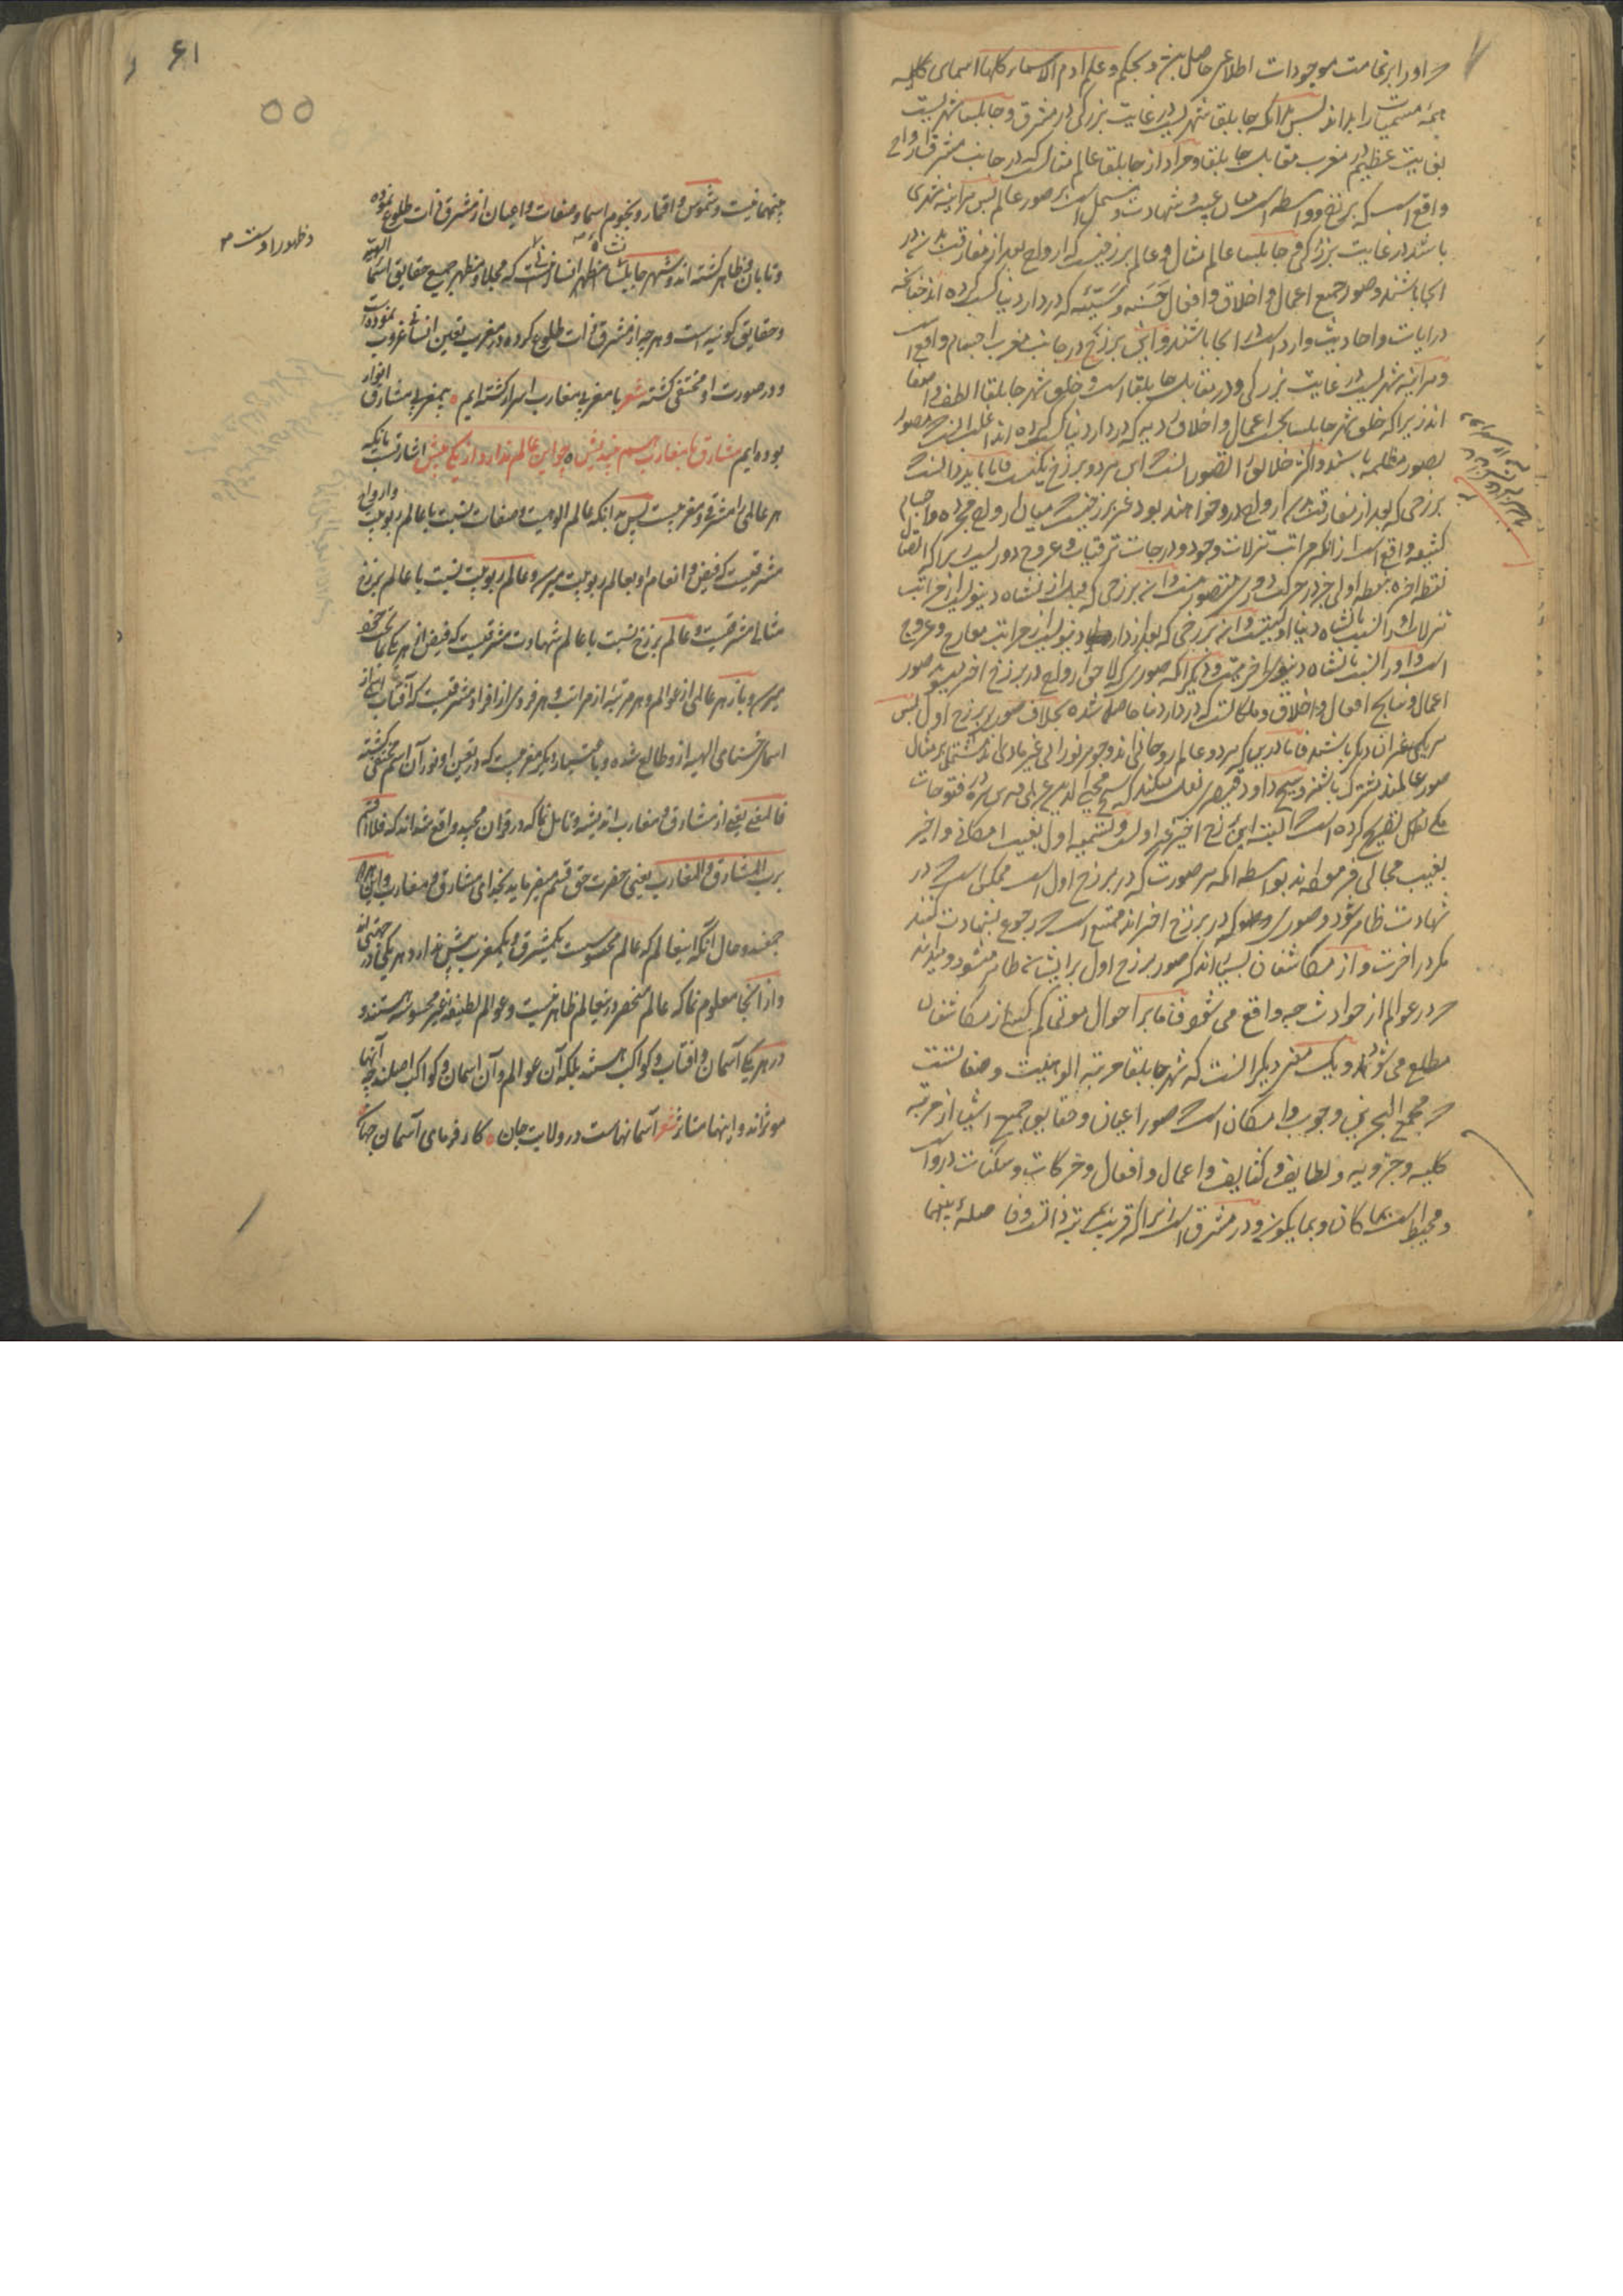 و اورا بر تمامت موجودات اطلاعی حاصل بین و بحکم و علم ادم الاسماء کلها اسمای کلیه
همه مسمیات را بداند پس بدانکه جابلقا شهریست در غایت بزرکی در مشرق و جابلسا شهریست
بغایت عظیم در مغرب مقابل جابلقا و مراد از جابلقا عالم مثالست که در جانب مشرق ارواح
واقع است که برزخ و واسطه است میان غیب و شهادت و مشتمل است بر صور عالم پس هراینه شهری
باشد در غایت بزرکی و جابلسا عالم مثال و عالم برزخیست که ارواح بعد از مفارقت نشاء
انجا باشند و صور جمیع اعمال و اخلاق و افعال حسنه و سیّئه که در دار دنیا کسب کرده اند چنانچه
در ایات و احادیث وارد است انجا باشند و این برزخ در جانب مغرب اجسام واقع است
و هراینه شهریست در غایت بزرکی و در مقابل جابلقا است و خلق شهر جابلقا الطف و اصفا
اند زیرا که خلق شهر جابلسا بحسب اعمال و اخلاق ردیه که در دار دنیا کسب کرده اند اغلب انست که مصور
بصور مظلمه باشند و اکثر خلایق را تصور انست که این هر دو برزخ یکیست فاما باید دانست
برزخی که بعد از مفارقت ارواح در و خواهند بود غیر برزخیست میان ارواح مجرده و اجسام
کثیفه واقع است زانکه مراتب تنزلات وجود و درجات ترقیات و عروج دوریست چرا که اتصال
نقطه اخره بنقطه اولی جز در حرکت دوری متصور نیست و ان برزخی که قبل از نشاه دنیویست از مراتب
تنزلات و او را نسبت با نشاه دنیا اولیتست و ان برزخی که بعد از دار دنیویست از مراتب معارج و عروج
است و او را نسبت با نشاه دنیوی اخریت و دیکر انکه صوری که لاحق ارواح در برزخ اخر میشود صور
اعمال و نتایج افعال و اخلاق و ملکاتست که در دار دنیا حاصل شده بخلاف صور برزخ اول پس
هر یکی غیر ان دیکر باشند فاما درین که هر دو عالم روحانی اند و جوهر نورانی غیر مادی اند مشتمل بر مثال
صور عالمند مشترک باشند و شیخ داود قیصری نقل میکند که شیخ محی الدین عربی قدس سره در فتوحات
مکی نقل تصریح کرده است البته این برزخ اخیر غیر اولست و تسمیه اول بغیب امکانی و اخیر
بغیب محالی فرموده اند بواسطه انکه هر صورت که در برزخ اول است ممکن است در
شهادت ظاهر شود و صوری که در برزخ اخر اند ممتنع است که رجوع بشهادت کنند
مکر در اخرت و از مکاشفان بسیار اند که صور برزخ اول بر ایشان ظاهر میشود و میدانند
در عوالم از حوادث چه واقع می شود فاما بر احوال موتی کم کسی از مکاشفان
مطلع می شوند و یک معنی دیکر انست که شهر جابلقا مرتبه الوهیت و صفاتست
و مجمع البحرین وجوب و امکان است صور اعیان و حقایق جمیع اشیا از مرتبه
کلیه و جزویه و لطایف و کثایف و اعمال و افعال و حرکات و سکنات در وست
و محیط است بما کان و بما یکون و در مشرق است زیرا که قریب مرتبه ذاتند و فاصله بینهما
۶۱
۵۵
بینهما نیست و شموس و اقمار و نجوم اسما و صفات و اعیان از مشرق ذات طلوع نموده
و ظهور اوست
و تابان و ظاهر کشته اند و شهر جابلسا مظهر انسانیست که مجلا و مظهر جمیع حقایق اسماء الهیه
و حقایق کونیه است و هر چه از مشرق ذات طلوع کرده در مغرب تعین انسانی غروب نموده است
و در صورت او مختفی کشته شعر با مغربی مغارب اسرار کشته ایم ٥ بی مغربی مشارق انوار
بوده ایم مشارق با مغارب هم بیندیش ٥ چو این عالم ندارد از یکی بیش اشارتست بانکه
هر عالمی را مشرقی و مغربیست پس بدانکه عالم الوهیت و صفات نسبت با عالم ربوبیت و ارواح
مشرقیست که فیض و انعام او بعالم ربوبیت میرسد و عالم ربوبیت نسبت با عالم برزخ
مثالی مشرقیست و عالم برزخ نسبت با عالم شهادت مشرقیست که فیض از هر یکی بما تحت خود
میرسد و باز هر عالمی از عوالم و هر مرتبه از مراتب و هر فردی از افراد مشرقیست که آفتاب اسمی از
اسماء حسنای الهیه از و طالع شده و باعتبار دیکر مغربیست که در تعین او نور آن اسم مختفی کشته
فالمعنی یعنی از مشارق و مغارب اندیشه و تامل نما که در قران مجید واقع شده اند که فلا اقسم
برب المشارق و المغارب یعنی حضرت حق قسم میفرماید بخدای مشارق و مغارب و این هر دو
جمعند و حال آنکه اینعالم که عالم محسوسست یکمشرق و یکمغرب بیش ندارد و هر یکی در جهتی اند
و از انجا معلوم نما که عالم منحصر در ینعالم ظاهر نیست و عوالم لطیفه غیر محسوسه هستند و
در هر یک آسمان و افتاب و کواکب هستند بلکه آن عوالم و آن اسمان و کواکب اصلند چه آنها
موثرند و اینها متاثر شعر آسمانهاست در ولایت جان ٥ کار فرمای آسمان جهان